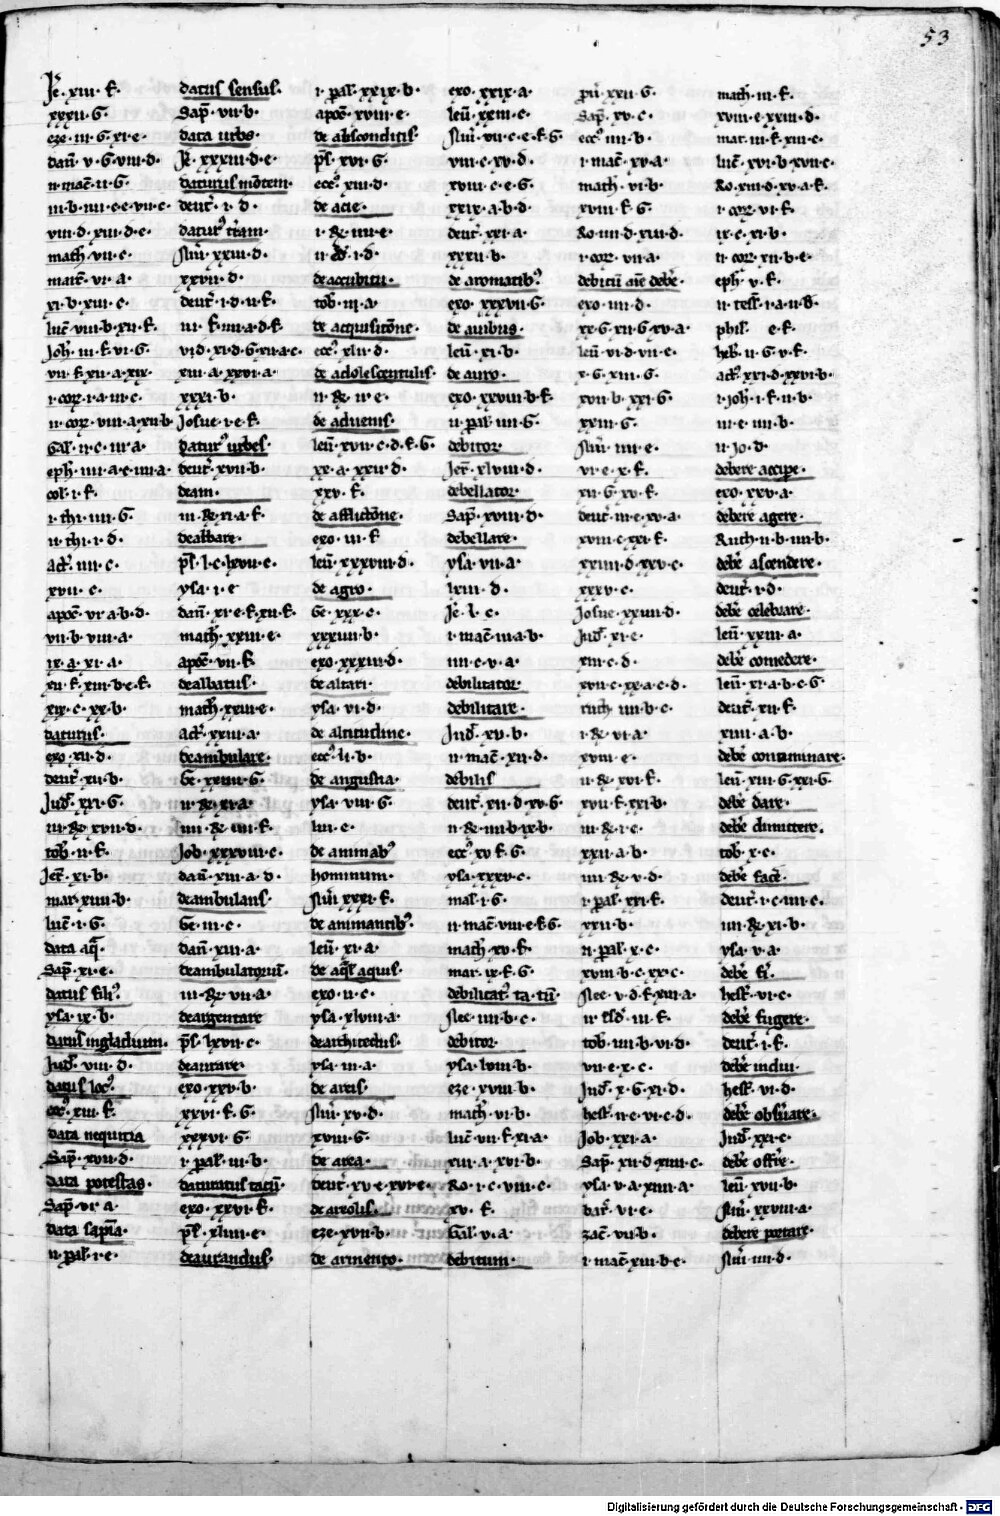 53
Je. xiii. f.
xxxii. G.
eze. iii. G. xi. e.
dan. v. G. viii. d.
ii. mac. ii. G.
iii. b. iiii. c. e. vii. c.
viii. d. xiii. d. e.
math. vii. c.
marc. vi. a.
xi. b. xiii. c.
luc. viii. b. xii. f.
Joh. iii. f. vi. G.
vii. f. xii. a. xix.
i. cor. i. a. iii. c.
ii. cor. viii. a. xii. b.
Gal. ii. c. iii. a.
eph. iiii. a. c. iiii. a.
col. i. f.
i. thi. iiii. G.
ii. thi. i. d.
act. iiii. c.
xvii. c.
apoc. vi. a. b. d.
vii. b. viii. a.
ix. a. xi. a.
xii. f. xiii. b. e. f.
xix. c. xx. b.
daturus.
exo. xii. d.
deut. xii. b.
Jud. xxi. G.
iii. Re. xvii. b.
tob. ii. f.
Jer. xi. b.
mar. xiiii. b.
luc. i. G.
data aq.
Sap. xi. e.
datus fili.
ysa. ix. b.
datus in gladium.
Jud. viii. d.
datus loc.
ecc. xiii. f.
data nequitia
Sap. xvii. d.
data potestas.
Sap. vi. a.
data sapia.
ii. pal. i. e.
datus sensus.
Sap. vii. b.
data urbs.
Je. xxxiii. d. e.
daturus motem.
deut. i. d.
datur tram.
Num. xxxii. d.
xxvii. d.
deut. i. d. ii. f.
iii. f. iiii. a. d. f.
vi. d. xi. d. G. xii. a. c.
xiii. a. xxvi. a.
xxxi. b.
Josue. i. e. f.
datur urbes.
deut. xvii. b.
deam.
iii. Re. xi. a. f.
dealbare.
ps. l. c. lxvii. e.
ysa. i. e.
dan. xi. e. f. xii. f.
math. xxiii. e.
apoc. vii. f.
dealbatus.
math. xxiii. e.
act. xxiii. a.
deambulare.
Ge. xxiiii. G.
ii. Re. xi. a.
iiii. Re. iiii. f.
Job. xxxviii. c.
dan. xiii. a. d.
deambulans.
Ge. iii. c.
dan. xiii. a.
deambulatorium.
iii. Re. vii. a.
deargentare
ps. lxvii. c.
deaurare.
exo. xxv. b.
xxvi. f. G.
xxxvi. G.
i. pal. iii. b.
exo. xxvi. f.
ps. xliiii. e.
deaurandus.
i. pal. xxix. b.
apoc. xviii. e.
de absconditis
ps. xvi. G.
ecc. xiii. d.
de acie.
i. Re. iiii. e.
de accubitu.
tob. iii. a.
de acquisitone.
ecc. xlii. d.
de adolescentulis.
de aduenis.
leu. xvii. c. d. f. G.
xx. a. xxii. d.
xxv. f.
de afflictone.
exo. iii. f.
leu. xxxviii. d.
de agro.
Ge. xxx. c.
xxxiiii. b.
exo. xxxiii. d.
de altari.
ysa. vi. d.
de altitudine.
ecc. li. b.
de angustia.
ysa. viii. G.
liii. e.
de animab
hominum.
Num. xxxi. f.
de animantib.
leu. xi. a.
de aql aquis.
exo. ii. c.
ysa. xlviii. a.
de architectus.
ysa. iii. a.
de arcus.
Num. xv. d.
xviii. G.
de area.
deut. xv. e. xvi. e.
de areolis.
eze. xvii. b.
de armento.
exo. xxix. a.
leu. xxiii. c.
Num. vii. c. e. f. G.
viii. c. xv. d.
xviii. c. e. G.
xxix. a. b. d.
deut. xxi. a.
xxxii. b.
de aromatib.
exo. xxxvii. G.
de auibus.
leu. xi. b.
de auro.
exo. xxviii. b. f.
ii. pal. iiii. G.
debitor.
Jer. xlviii. d.
debellator.
Sap. xviii. d.
debellare.
ysa. vii. a.
lxiii. d.
Je. l. c.
i. mac. iii. a. b.
iiii. c. v. a.
debilitator.
debilitare.
Jud. xv. b.
ii. mac. xii. d.
debilis
deut. xii. d. xv. G.
ii. Re. iiii. b. ix. b.
ecc. xv. f. G.
ysa. xxxv. c.
mal. i. G.
ii. mac. viii. e. f. G.
math. xv. f.
mar. ix. f. G.
debilitat. ta. tu.
Nee. iiii. b. c.
debitor.
ysa. lviii. b.
eze. xviii. b.
math. vi. b.
luc. vii. f. xi. a.
xiii. a. xvi. b.
Ro. i. c. viii. c.
xv. f.
Gal. v. a.
debitum.
pru. xxii. G.
Sap. xv. c.
ecc. iiii. b.
i. mac. xv. a.
math. vi. b.
xviii. f. G.
Ro. iiii. d. xiii. d.
i. cor. vii. a.
debitu aie debe.
exo. iiii. d.
xx. G. xii. G. xv. a.
leu. vi. d. vii. c.
x. G. xiii. G.
xvii. b. xxi. G.
xxiii. G.
Num. iiii. e.
vi. e. x. f.
xii. G. xv. f.
deut. iii. e. xv. a.
xviii. c. xxi. f.
xxiiii. d. xxv. c.
xxxv. c.
Josue. xxiiii. d.
Jud. xi. e.
xiii. c. d.
xvii. c. xx. a. c. d.
ruth. iiii. b. c.
i. Re. vi. a.
xviii. e.
ii. Re. xvi. f.
xvii. f. xxi. b.
iii. Re. i. e.
xxii. a. b.
iiii. Re. v. d.
i. pal. xxi. f.
xxii. b.
ii. pal. x. c.
xviii. b. c. xx. c.
Nee. v. d. f. xiii. a.
ii. esd. iii. f.
tob. iiii. b. vi. d.
vii. e. x. c.
Jud. x. G. xi. d.
hest. ii. e. vi. c. d.
Job. xxi. a.
Sap. xii. d. xiiii. c.
ysa. v. a. xiiii. a.
bar. vi. e.
zac. vii. b.
i. mac. xiii. b. e.
math. iii. f.
xviii. e. xxiii. d.
mar. iii. f. xiii. c.
luc. xvi. b. xvii. c.
Ro. xiii. d. xv. a. f.
i. cor. vi. f.
ix. c. xi. b.
ii. cor. xii. b. e.
eph. v. f.
ii. tess. i. a. ii. d.
phil. e. f.
heb. ii. G. v. f.
act. xxi. d. xxvi. b.
i. joh. i. f. ii. b.
iii. e. iiii. b.
ii. jo. d.
debere accipe.
exo. xxv. a.
debere agere.
Ruth. ii. b. iiii. b.
debe ascendere.
deut. i. d.
debe celebrare.
leu. xxiii. a.
debe comedere.
leu. xi. a. b. c. G.
deut. xii. f.
xiiii. a. b.
debe contaminare.
leu. xiii. G. xxi. G.
debe dare.
debe dimittere.
tob. x. c.
debe face.
deut. i. c. iii. c.
iiii. Re. xi. b.
ysa. v. a.
debe fi.
hest. vi. c.
debe fugere.
deut. i. f.
debe indui.
hest. vi. d.
debe obsuare.
Jud. xxi. c.
debe offre.
leu. xvii. b.
Num. xxviii. a.
debere portare.
Num. iiii. d.
Digitalisierung gefördert durch die Deutsche Forschungsgemeinschaft - DFG